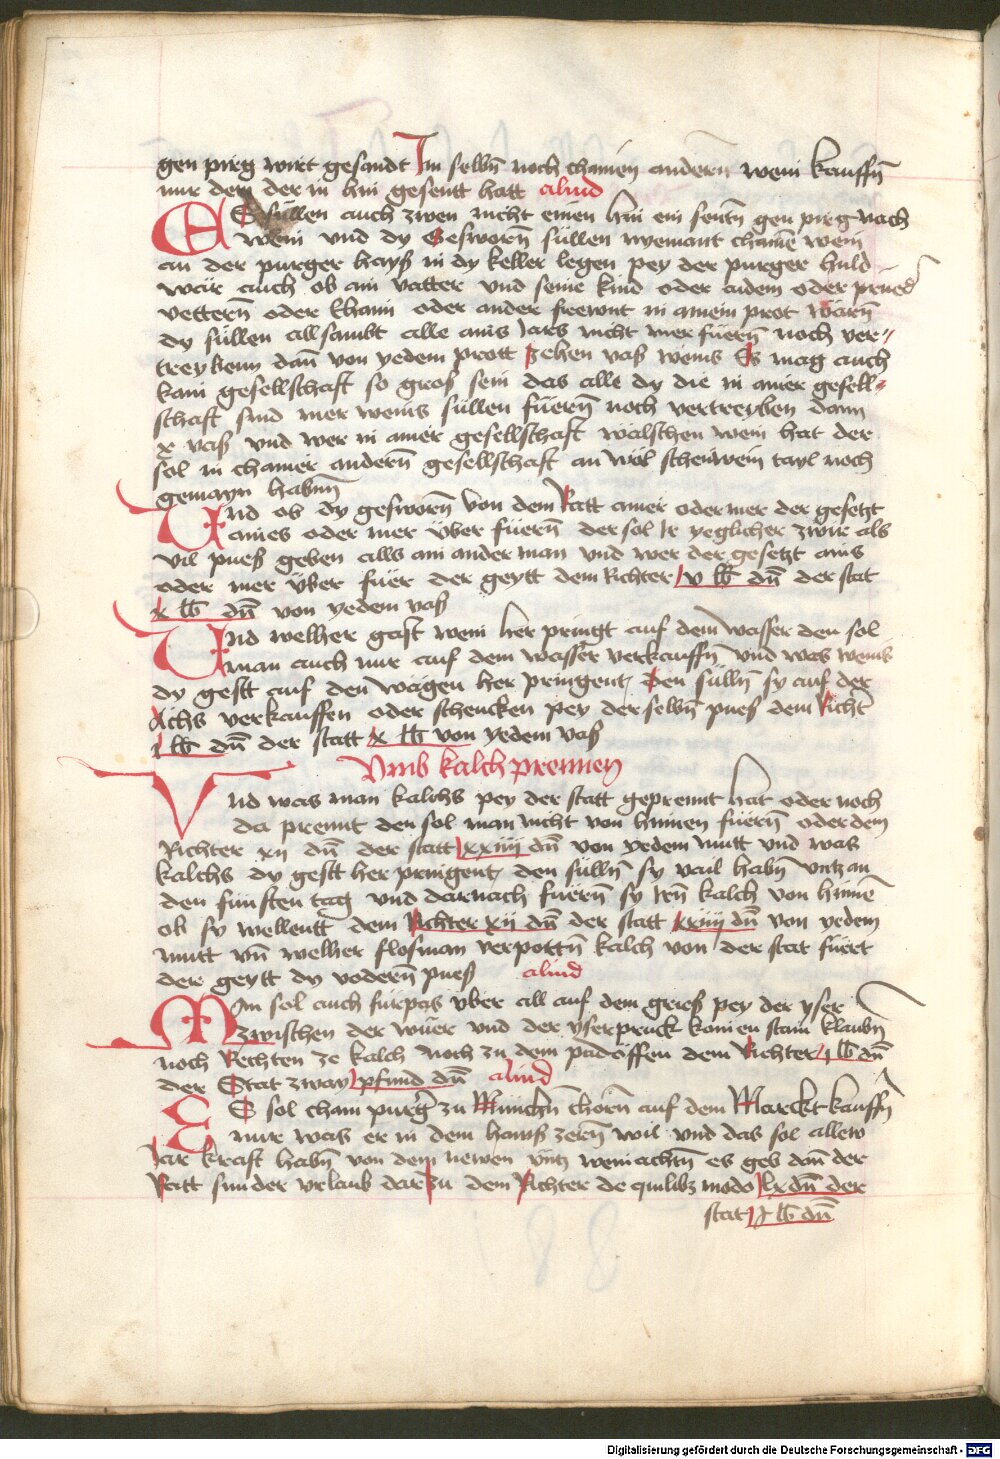 gen pirg wirt gesandt Im selbñ noch chainen andern wein kauffñ
nur dem der in hin gesentt hatt aliud
ES süllen auch zwen nicht ainen hin ein sentñ gen pirg nach
wein vnd dy Gesworñ süllen nyemant chainē wein
an der purger hayß in dy keller legen pey der purger huld
wär auch ob ain vatter vnd seine kind oder aidem oder prüed
vetterñ oder khain oder ander frewnt in ainem prot wärñ
dy süllen allsambt alle ains Jars nicht mer füerñ noch ver-
treyben dañ von yedem prott zehen vaß weins Es mag auch
kain gesellschaft so groß sein das alle dy die in ainer gesell-
schaft sind mer weins süllen füerñ noch vertreyben dann
x vaß vnd wer in ainer gesellschaft wälschen wein hat der
sol in chainer anderñ gesellschaft an wälschenwein tayl noch
gemayn habnn
Vnd ob dy gesworñ von dem Ratt ainer oder mer der gesetzt
aines oder mer über füerñ der sol Ir yeglicher zwir als
vil pueß geben alls ain ander man vnd wer der gesetzt ains
oder mer über füer der geytt dem Richter v lb dñ der stat
x lb dñ von yedem vaß
Vnd welher gast wein her pringt auf dem wasser den sol
man auch nur auf dem wasser verkauffñ vnd was weins
dy gestt auf den wägen her pringent den süllñ sy auf der
Achs verkauffen oder schencken pey derselbñ pueß dem Richt̄
i lb dñ der statt x lb von yedem vaß
Vmb kalch prennen
Vnd was man kalchs pey der statt geprennt hat oder noch
da prennt den sol man nicht von hinnen füerñ oder dem
Richter xii dñ der statt xxiiii dñ von yedem mutt vnd was
kalchs dy gestt her pringent den süllñ sy vail habñ vntz an
den fünften tag vnd darnach füerñ sy Irñ kalch von hinnē
ob sy wellentt dem Richter xii dñ der statt xxiiii dñ von yedem
mutt vñ welher flosman verpottñ kalch von der stat füert
der geytt dy voderñ pueß aliud
Man sol auch fürpas vber all auf dem grieß pey der yser
zwischen der wüer vnd der yserpruck kainen stain klaubñ
noch Rechten ze kalch noch zu dem padöffen dem Richter i lb dñ
der Stat zway pfund dñ aliud
ES sol chain purger zu Münichñ chorñ auf dem Marckt kauffñ
nur was er in dem hauß zerñ wil vnd das sol allew
Jar kraft habñ von dem newen vntz weinachtñ es geb dañ der
Ratt sunder vrlaub darzu dem Richter de quilibz modo lx dñ der
stat i lb dñ
Digitalisierung gefördert durch die Deutsche Forschungsgemeinschaft - DFG